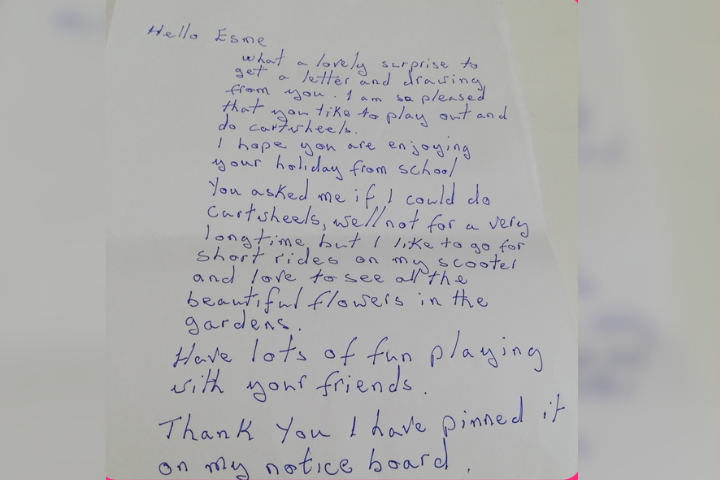 Hello Esme
what a lovely surprise to
get a letter and drawing
from you. I am so pleased
that you like to play out and
do cartwheels.
I hope you are enjoying
your holiday from school
You asked me if I could do
cartwheels, well not for a very
long time, but I like to go for
short rides on my scooter
and love to see all the
beautiful flowers in the
gardens.
Have lots of fun playing
with your friends.
Thank You I have pinned it
on my notice board.